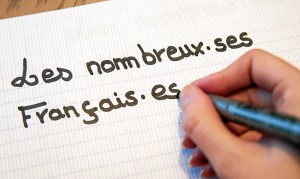 Les nombreux·ses
Français·es